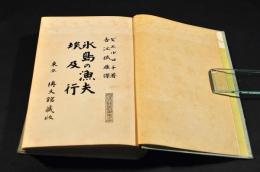 ピエル・ロチ著
吉江孤雁譯
氷島の漁夫
埃及行
東京 博文館藏版